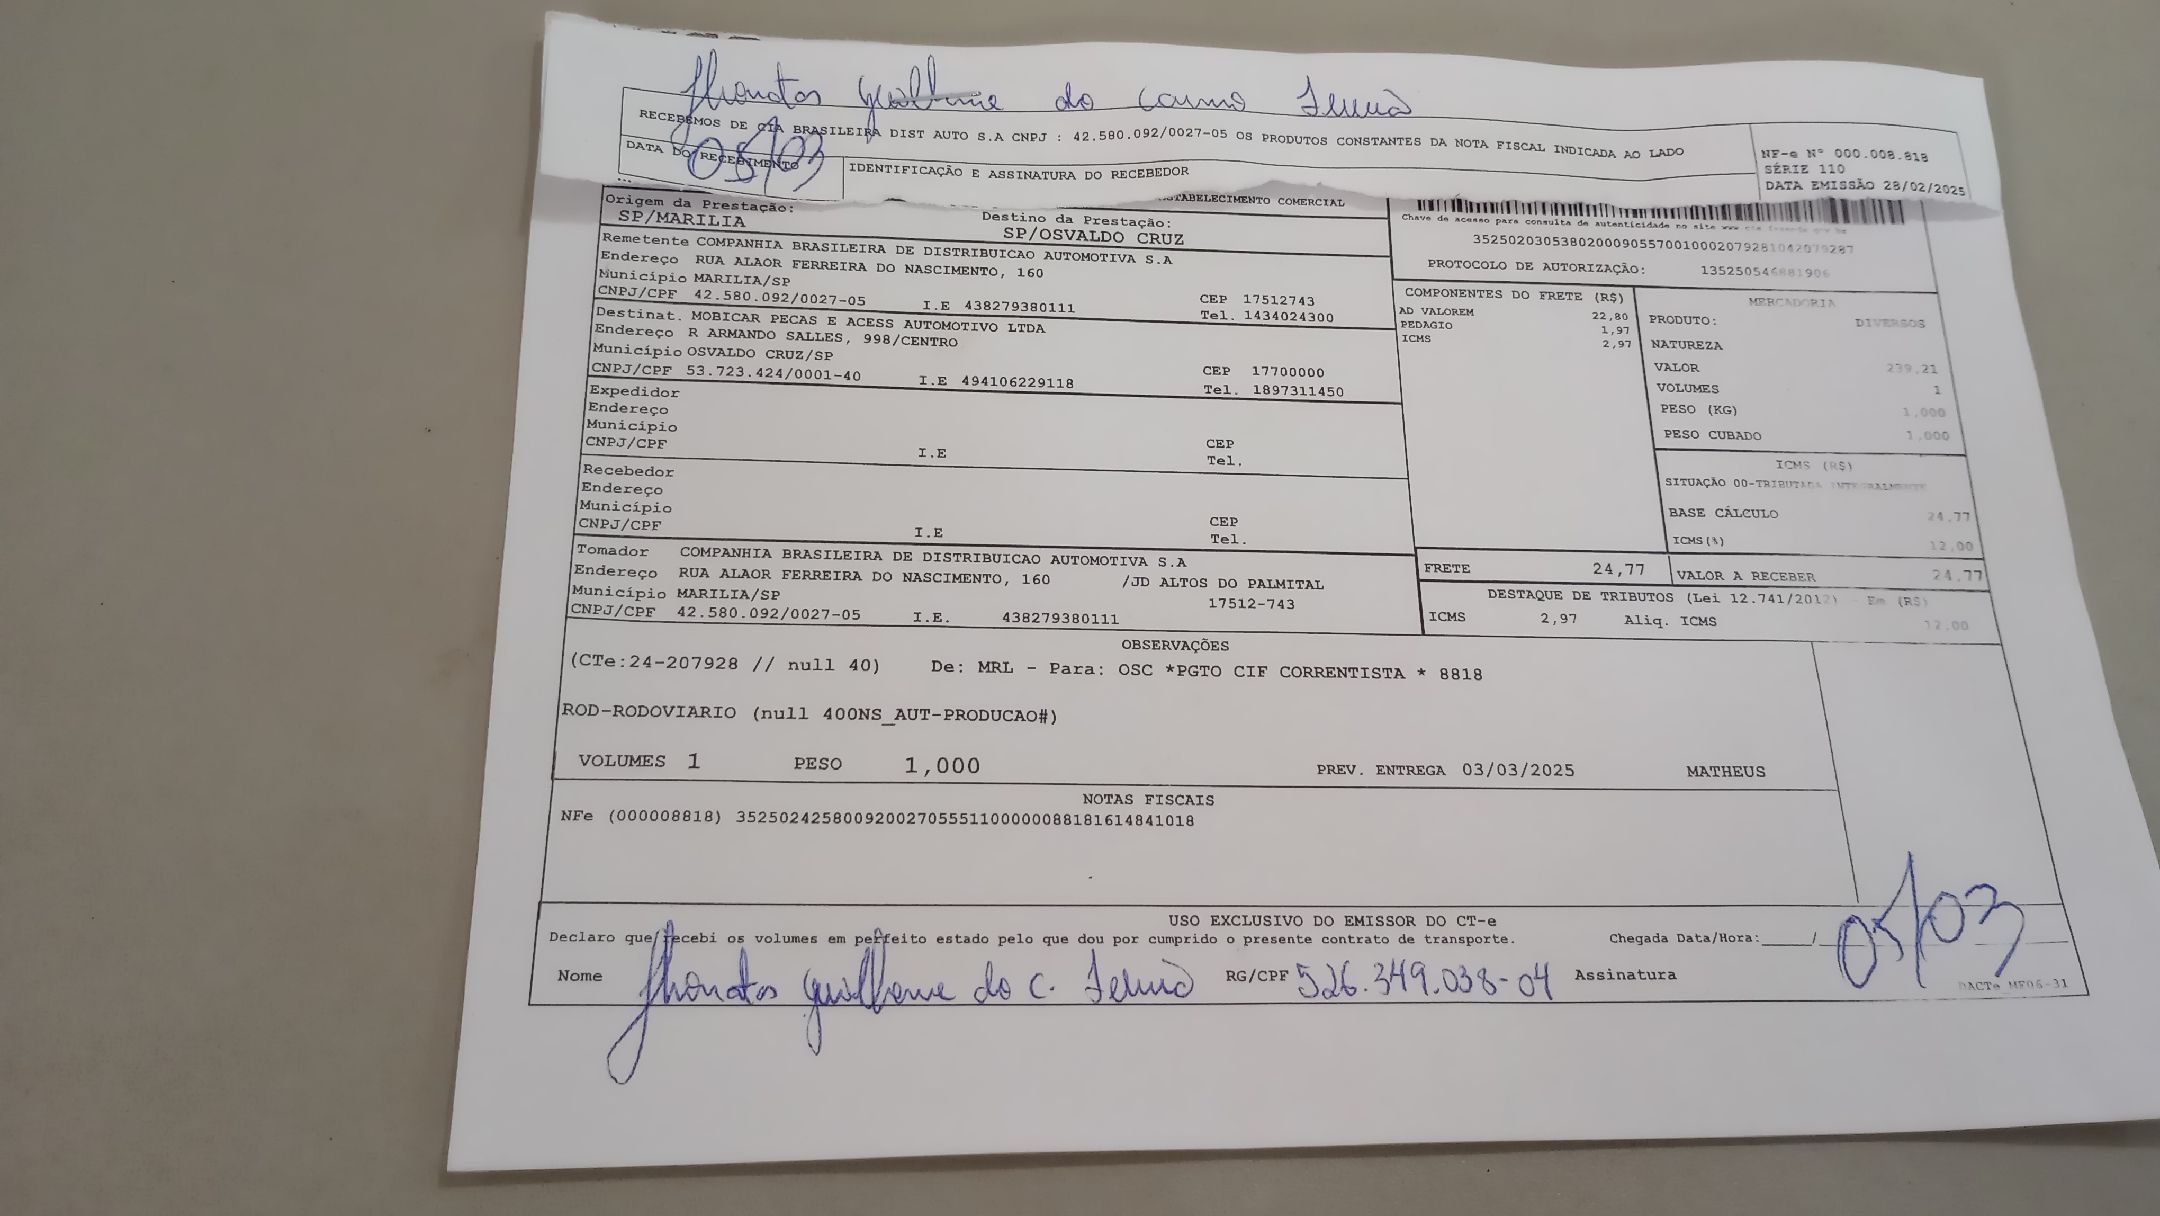 Jhonatas Guilherme do Carmo
RECEBEMOS DE CIA BRASILEIRA DIST AUTO S.A CNPJ : 42.580.092/0027-05 OS PRODUTOS CONSTANTES DA NOTA FISCAL INDICADA AO LADO
DATA DO RECEBIMENTO 05/03
IDENTIFICAÇÃO E ASSINATURA DO RECEBEDOR
NF-e N° 000.008.818
SÉRIE 110
DATA EMISSÃO 28/02/2025
COMERCIAL
Origem da Prestação:
SP/MARILIA
Destino da Prestação:
SP/OSVALDO CRUZ
Chave de acesso para consulta de autenticidade no site
PROTOCOLO DE AUTORIZAÇÃO: 135250546881906
Remetente COMPANHIA BRASILEIRA DE DISTRIBUICAO AUTOMOTIVA S.A
Endereço RUA ALAOR FERREIRA DO NASCIMENTO, 160
Município MARILIA/SP CEP 17512743
CNPJ/CPF 42.580.092/0027-05 I.E 438279380111 Tel. 1434024300
Destinat. MOBICAR PECAS E ACESS AUTOMOTIVO LTDA
Endereço R ARMANDO SALLES, 998/CENTRO
Município OSVALDO CRUZ/SP CEP 17700000
CNPJ/CPF 53.723.424/0001-40 I.E 494106229118 Tel. 1897311450
Expedidor
Endereço
Município CEP
CNPJ/CPF I.E Tel.
Recebedor
Endereço
Município CEP
CNPJ/CPF I.E Tel.
Tomador COMPANHIA BRASILEIRA DE DISTRIBUICAO AUTOMOTIVA S.A
Endereço RUA ALAOR FERREIRA DO NASCIMENTO, 160 /JD ALTOS DO PALMITAL
Município MARILIA/SP 17512-743
CNPJ/CPF 42.580.092/0027-05 I.E. 438279380111
COMPONENTES DO FRETE (R$)
AD VALOREM 22,80
PEDAGIO 1,97
ICMS 2,97
MERCADORIA
PRODUTO: DIVERSOS
NATUREZA
VALOR 239,21
VOLUMES 1
PESO (KG) 1,000
PESO CUBADO 1,000
ICMS (R$)
SITUAÇÃO 00-TRIBUTADA INTEGRALMENTE
BASE CÁLCULO 24,77
ICMS(%) 12,00
FRETE 24,77
VALOR A RECEBER 24,77
DESTAQUE DE TRIBUTOS (Lei 12.741/2012) - Em (R$)
ICMS 2,97 Aliq. ICMS 12,00
OBSERVAÇÕES
(CTe:24-207928 // null 40) De: MRL - Para: OSC *PGTO CIF CORRENTISTA * 8818
ROD-RODOVIARIO (null 400NS_AUT-PRODUCAO#)
VOLUMES 1 PESO 1,000 PREV. ENTREGA 03/03/2025 MATHEUS
NOTAS FISCAIS
NFe (000008818) 35250242580092002705551100000088181614841018
USO EXCLUSIVO DO EMISSOR DO CT-e
Declaro que recebi os volumes em perfeito estado pelo que dou por cumprido o presente contrato de transporte. Chegada Data/Hora:_____/ 05/03
Nome Jhonatas Guilherme do C. RG/CPF 526.349.038-04 Assinatura
DACTe MF06-31